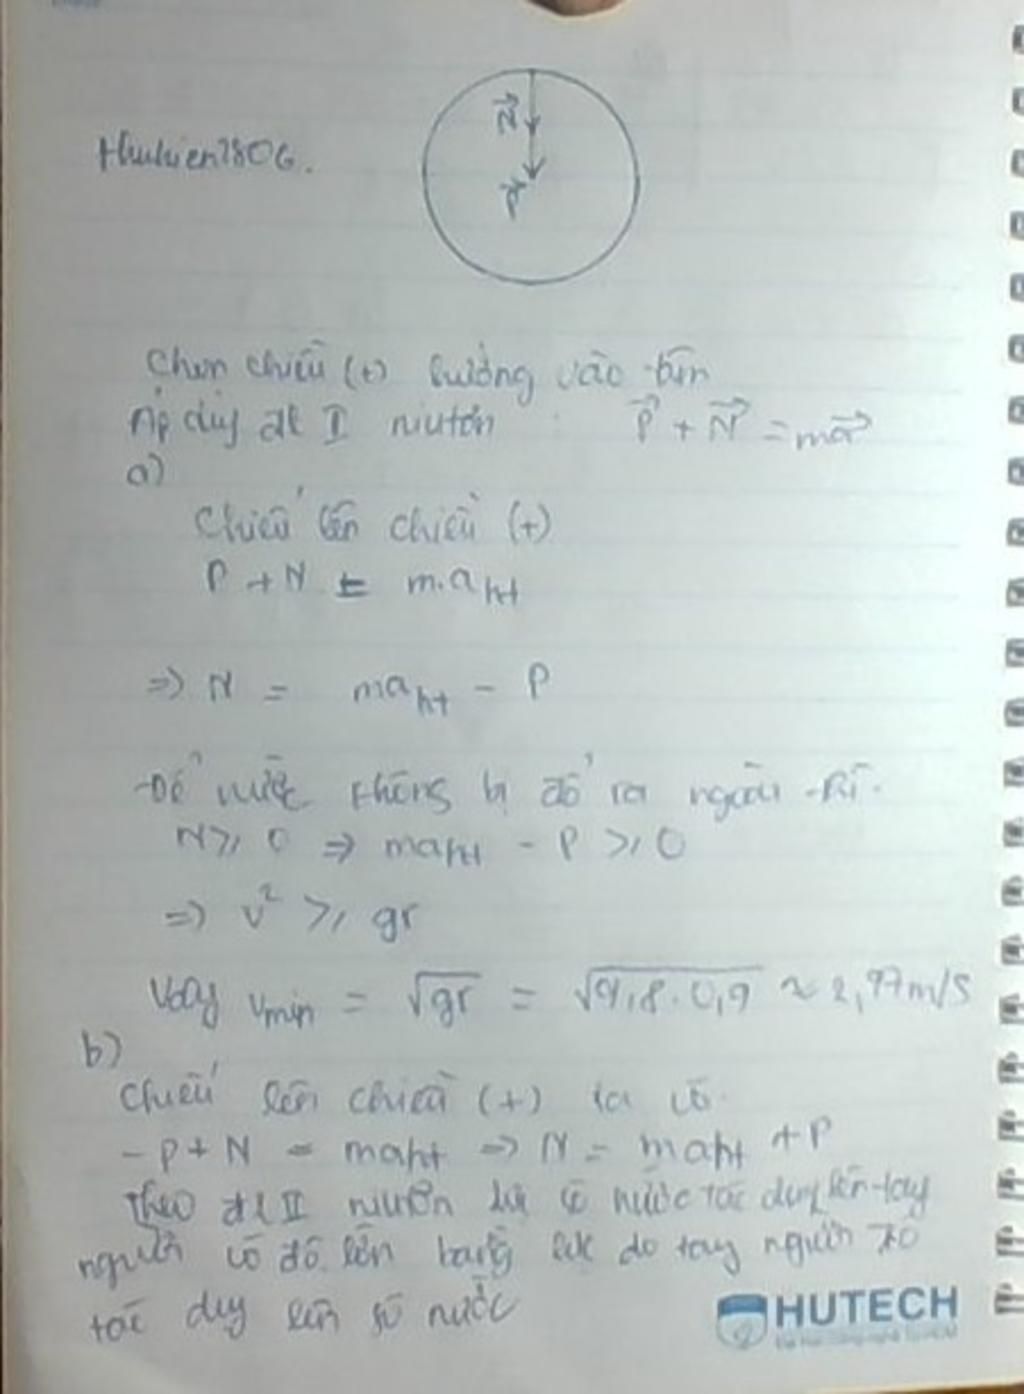 Thuhien1806.
N
P
Chọn chiều (+) hướng vào tâm
Áp dụg đl II niutơn : P + N = ma
a)
Chiếu lên chiều (+)
P + N = m.aht
=> N = maht - P
Để nước không bị đổ ra ngoài thì.
N ≥ 0 => maht - P ≥ 0
=> v² ≥ gr
Vậy vmin = √gr = √9,8.0,9 ≈ 2,97m/s
b)
Chiếu lên chiều (+) ta có
-P + N = maht => N = maht + P
Theo đl II niutơn lực nước tác dụg lên tay
người có độ lớn bằng lực do tay người
tác dụg lên số nước
HUTECH